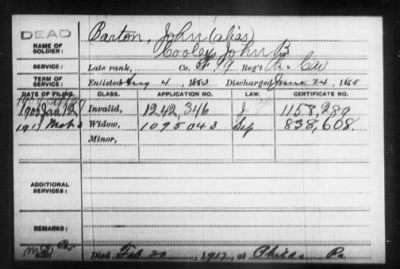 DEAD
NAME OF SOLDIER: Barton, John (alias)
Cooley, John B
SERVICE: Late rank, Co. Reg't Cav
TERM OF SERVICE: Enlisted 4, 1863 Discharged June 24, 1865
DATE OF FILING. CLASS. APPLICATION NO. LAW. CERTIFICATE NO.
Invalid, 1242,346 1158,282
Widow, 1095043 Sep 838,608.
Minor,
ADDITIONAL SERVICES:
REMARKS:
Died Feb 20, 1912, at Phila Pa